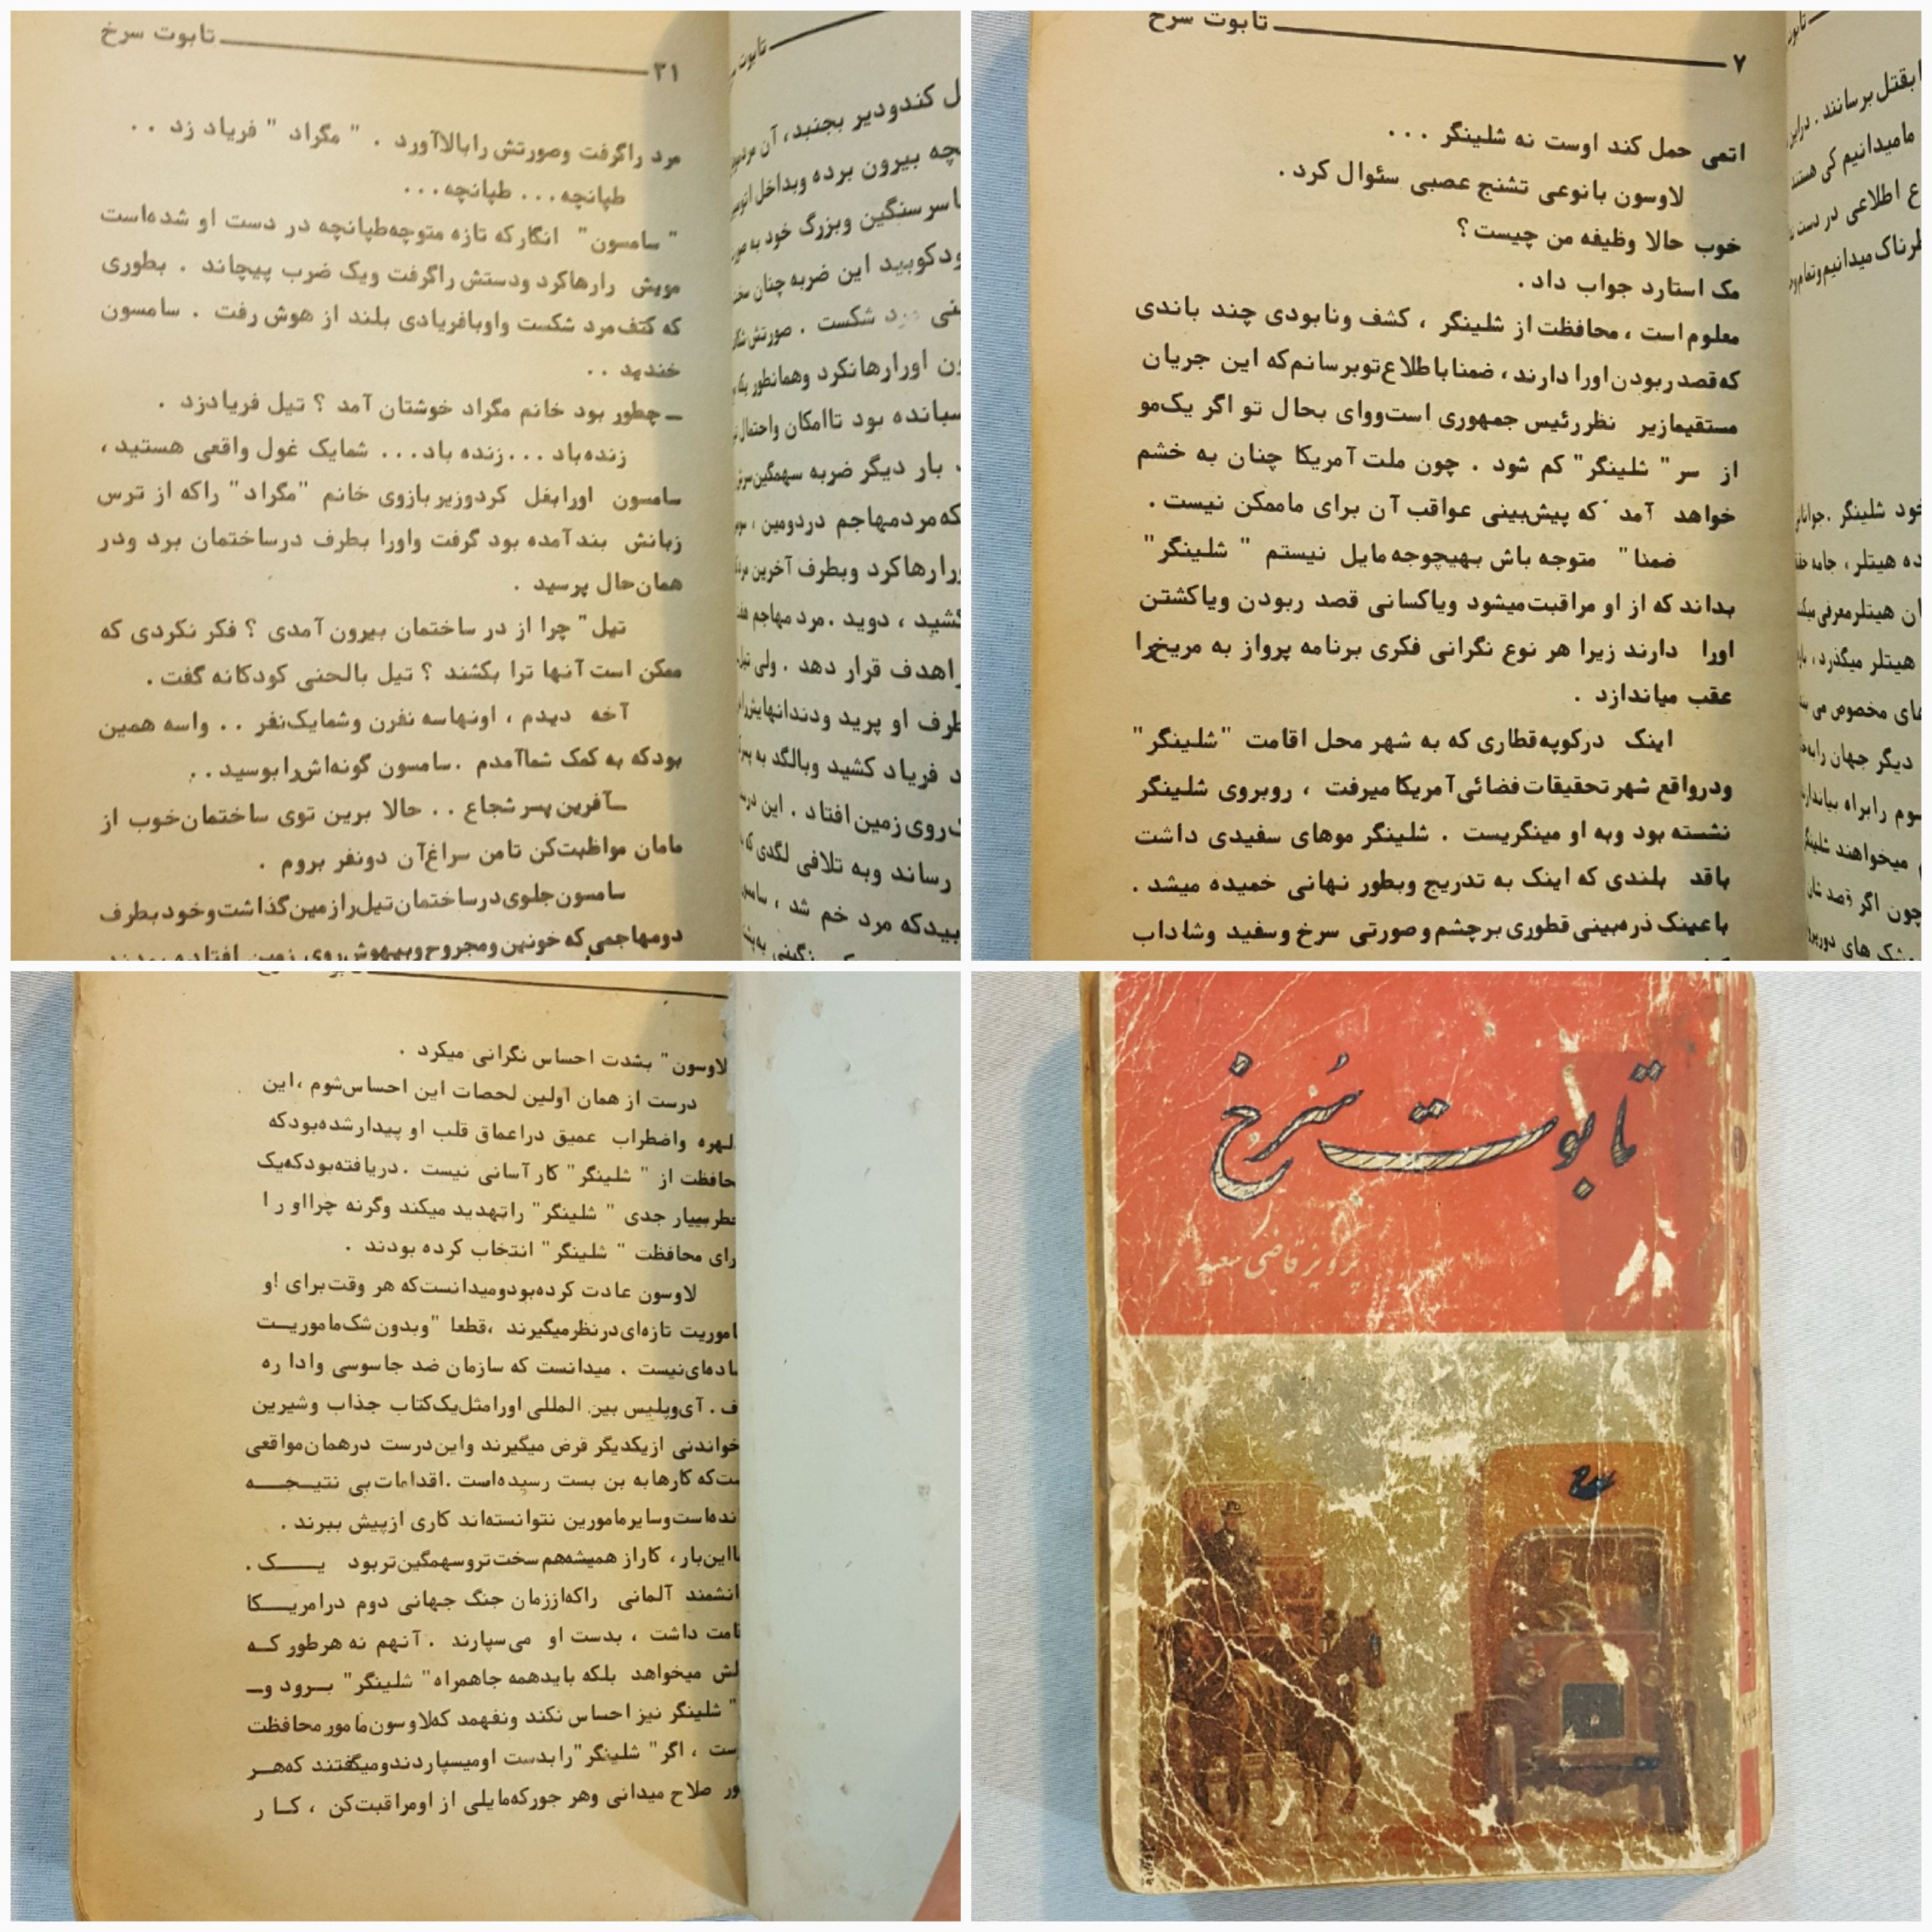 تابوت سرخ
۲۱
مرد راگرفت وصورتش رابالاآورد . " مگراد " فریاد زد . .
طپانچه... طپانچه...
" سامسون" انگارکه تازه متوجه‌طپانچه در دست او شده‌است
مویش رارهاکرد ودستش راگرفت ویک ضرب پیچاند . بطوری
که کتف‌مرد شکست واوبافریادی بلند از هوش رفت . سامسون
خندید . .
ـ چطور بود خانم مگراد خوشتان آمد ؟ تیل فریادزد .
زنده‌باد ...زنده باد... شمایک غول واقعی هستید ،
سامسون اورابغل کردوزیر بازوی خانم "مگراد" راکه از ترس
زبانش بندآمده بود گرفت واورا بطرف درساختمان برد ودر
همان‌حال پرسید .
تیل" چرا از در ساختمان بیرون آمدی ؟ فکر نکردی که
ممکن است آنها ترا بکشند ؟ تیل بالحنی کودکانه گفت .
آخه دیدم ، اونهاسه نفرن وشمایک‌نفر . . واسه همین
بودکه به کمک شماآمدم .سامسون گونه‌اش‌رابوسید . .
ـآفرین پسرشجاع . . حالا برین توی ساختمان‌خوب از
مامان مواظبت‌کن تامن سراغ‌آن دونفر بروم .
سامسون‌جلوی‌درساختمان‌تیل‌رازمین‌گذاشت‌وخودبطرف
دومهاجمی‌که‌خونین‌ومجروح‌وبیهوش‌روی زمین افتاده بودند
ل کندودیر بجنبد، آن
چه بیرون برده وبداخل
سرسنگین وبزرگ خود به
ودکوبید این ضربه چنان
شکست . صورتش
ون اورارهانکرد وهمانطور
سبانده بود تاامکان واحتمال
بار دیگر ضربه سهمگین
که‌مردمهاجم دردومین ،
ورارهاکرد وبطرف آخرین
کشید ، دوید .مرد مهاجم
راهدف قرار دهد . ولی
طرف او پرید ودندانهایش
د فریاد کشید وبالگد به
روی زمین افتاد . این
رساند وبه تلافی لگدی که
بیدکه مرد خم شد ،
تابوت سرخ
۷
اتمی حمل کند اوست نه شلینگر ...
لاوسون بانوعی تشنج عصبی سئوال کرد .
خوب حالا وظیفه من چیست ؟
مک استارد جواب داد .
معلوم است ، محافظت از شلینگر ، کشف ونابودی چند باندی
که‌قصدربودن‌اورا دارند ، ضمناباطلاع‌توبرسانم‌که این جریان
مستقیمازیر نظررئیس جمهوری است‌ووای بحال تو اگر یک‌مو
از سر" شلینگر" کم شود . چون ملت آمریکا چنان به خشم
خواهد آمد که پیش‌بینی عواقب آن برای ماممکن نیست .
ضمنا" متوجه باش بهیچوجه‌مایل نیستم " شلینگر"
بداند که از او مراقبت‌میشود ویاکسانی قصد ربودن ویاکشتن
اورا دارند زیرا هر نوع نگرانی فکری برنامه پرواز به مریخ‌را
عقب میاندازد .
اینک درکوپه‌قطاری که به شهر محل اقامت "شلینگر"
ودرواقع شهرتحقیقات‌فضائی‌آمریکامیرفت ، روبروی شلینگر
نشسته بود وبه او مینگریست . شلینگر موهای سفیدی داشت
باقد بلندی که اینک به تدریج وبطور نهانی خمیده میشد .
باعینک ذره‌بینی قطوری برچشم‌و صورتی سرخ وسفید وشاداب
بقتل برسانند . دراین
مامیدانیم کی هستند
ع اطلاعی در دست
طرناک‌میدانیم‌وتمام
خود شلینگر .
ده هیتلر ، جامه
ان هیتلرمعرفی
هیتلر میگذرد ،
های مخصوص می
دیگر جهان رابه
سوم رابراه
میخواهند
چون اگر قصد شان
های
لاوسون" بشدت احساس نگرانی میکرد .
درست از همان اولین لحصات این احساس‌شوم ،این
لهره واضطراب عمیق دراعماق قلب او پیدارشده‌بودکه
حافظت از " شلینگر" کار آسانی نیست .دریافته‌بودکه‌یک
طربسیار جدی " شلینگر" راتهدید میکند وگرنه چرااو را
رای محافظت " شلینگر" انتخاب کرده بودند .
لاوسون عادت کرده‌بودومیدانست‌که هر وقت‌برای او
اموریت تازه‌ای‌درنظرمیگیرند ،قطعا "وبدون‌شک‌ماموریـت
اده‌ای‌نیست . میدانست که سازمان ضد جاسوسی واداره
ف . آی‌وپلیس بین المللی اورامثل‌یک‌کتاب جذاب وشیرین
خواندنی ازیکدیگر قرض میگیرند واین‌درست درهمان‌مواقعی
ست‌که کارهابه بن بست رسیده‌است .اقدامات‌بی نتیـجـه
نده‌است‌وسایرمامورین نتوانسته‌اند کاری ازپیش ببرند .
مااین‌بار ، کاراز همیشه‌هم‌سخت‌تروسهمگین‌تربود یـک .
انشمند آلمانی راکه‌اززمان جنگ جهانی دوم درامریـکا
امت داشت ، بدست او می‌سپارند . آنهم نه هرطور کـه
لش میخواهد بلکه بایدهمه جاهمراه" شلینگر" بـرود وـ
" شلینگر نیز احساس نکند ونفهمد که‌لاوسون‌مامورمحافظت
ست ، اگر" شلینگر"رابدست اومیسپاردندومیگفتند که‌هـر
ور صلاح میدانی وهر جورکه‌مایلی از اومراقبت‌کن ، کـار
تابوت سُرخ
پرویز قاضی سعید